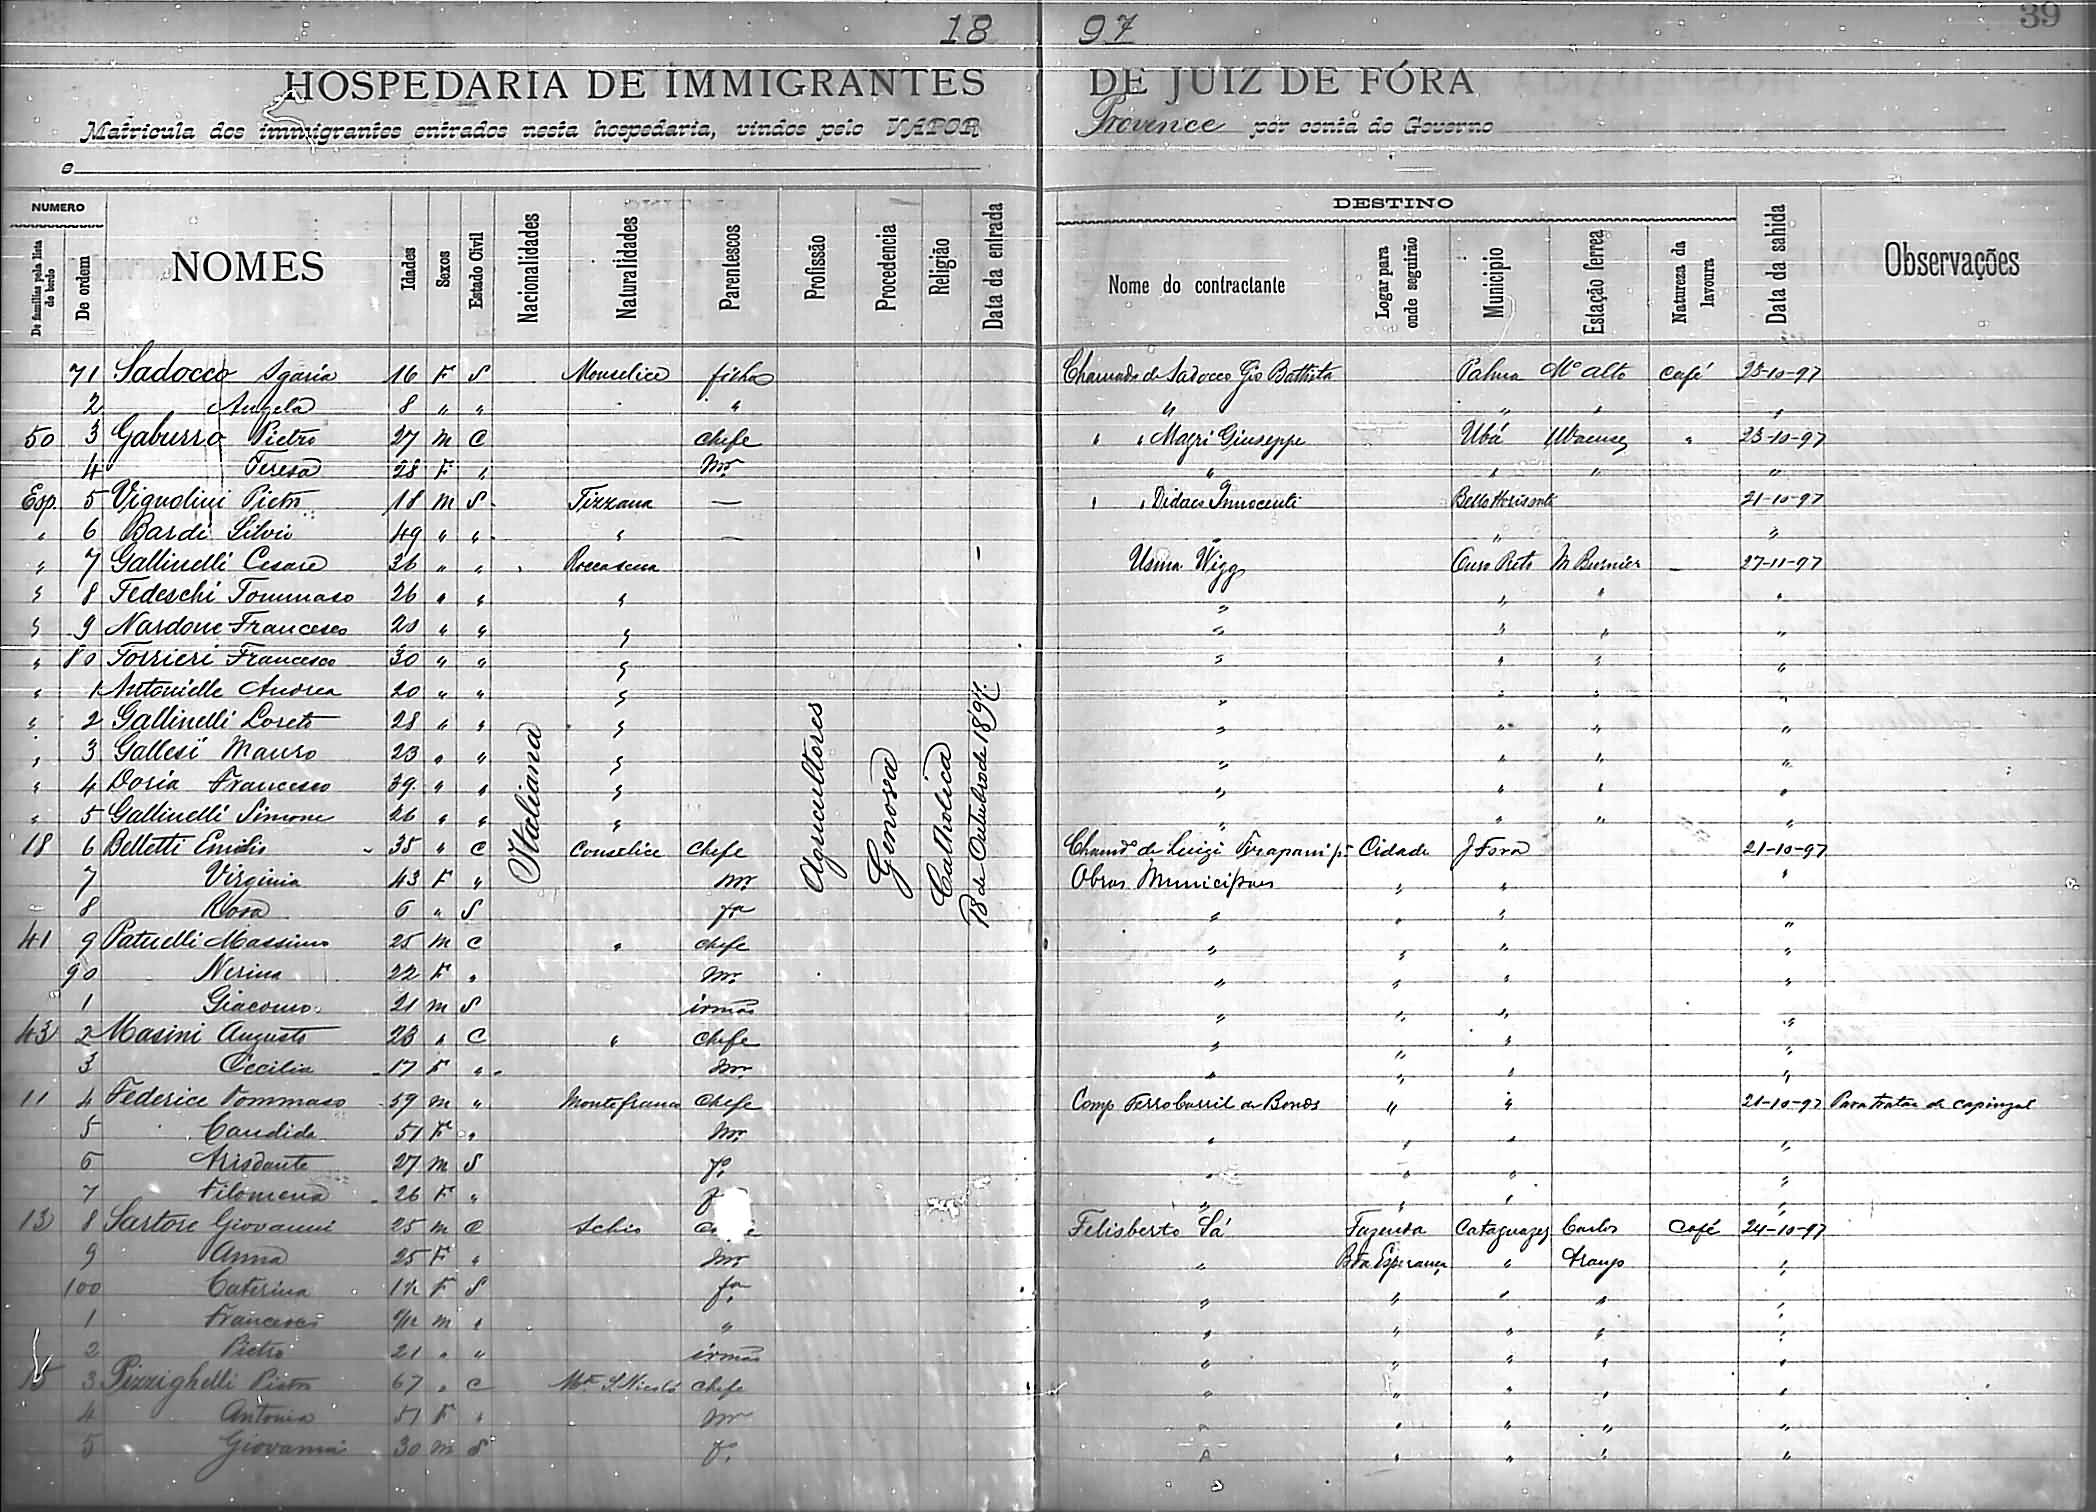 18 97 39
HOSPEDARIA DE IMMIGRANTES DE JUIZ DE FÓRA
Matricula dos immigrantes entrados nesta hospedaria, vindos pelo VAPOR Provence por conta do Governo
e
NUMERO DESTINO
De familias pela lista de bordo De ordem NOMES Idades Sexos Estado Civil Nacionalidades Naturalidades Parentescos Profissão Procedencia Religião Data da entrada Nome do contractante Logar para onde seguirão Municipio Estação ferrea Natureza da lavoura Data da sahida Observações
71 Sadocco 16 F S Monselice filha Chamado de Sadocco Gio Battista Palma Mº Alto Café 23-10-97
2 Angela 8 " " " " " " "
50 3 Gaburro Pietro 27 M C chefe " " Magri Giuseppe Ubá " 23-10-97
4 Teresa 28 F " Mr. " " " "
Esp. 5 Vignolini Pietro 18 M S Tizzana — " " Didaco Innocenti Bello Horisonte 21-10-97
" 6 Bardi Silvio 49 " " " — " " "
" 7 Gallinelli Cesare 36 " " Usina Wigg Ouro Preto M Burnier — 27-11-97
" 8 Tedeschi Tommaso 26 " " " " " " "
" 9 Nardone Francesco 20 " " " " " " "
" 80 Torrieri Francesco 30 " " " " " " "
" 1 Antonielle Andrea 20 " " " " " " "
" 2 Gallinelli Loreto 28 " " " " " " "
" 3 Gallesi Mauro 23 " " " " " " "
" 4 Doria Francesco 39 " " " " " " "
" 5 Gallinelli Simone 26 " " " " " " "
Italiana Agricultores Genova Catholica 18 de Outubro de 1897.
18 6 Belletti Emidio 35 " C Conselice Chefe Chamdº de Luigi Cidade J Fora 21-10-97
7 Virginia 43 F " Mr. Obras Municipaes " " "
8 Rosa 6 " S fa " " " "
41 9 Patuelli Massimo 25 M C " chefe " " " "
90 Nerina 22 F " Mr. " " " "
1 Giacomo 21 M S irmão " " " "
43 2 Masini Augusto 23 " C " chefe " " " "
3 Cecilia 17 F " Mr. " " " "
11 4 Federice Tommaso 59 M " Montefranco Chefe Comp Ferro Carril de Bonds " " 21-10-97 Para tratar de capinzal
5 Candida 51 F " Mr. " " " "
6 27 M S fº " " " "
7 Filomena 26 F " " " " "
13 8 Sartore Giovanni 25 M C Schio Felisberto Sá Fazenda Cataguazes Carlos Café 24-10-97
9 Anna 25 F " Mr. " Bôa Esperança " Araujo "
100 Caterina F S fa " " " " "
1 Francesco M " " " " " " "
2 Pietro 21 " " irmão " " " " "
15 3 Pizzighelli Pietro 67 " C Mte S. Nicoló chefe " " " " "
4 Antonia 51 F " Mr " " " " "
5 Giovanni 30 M S fº " " " " "